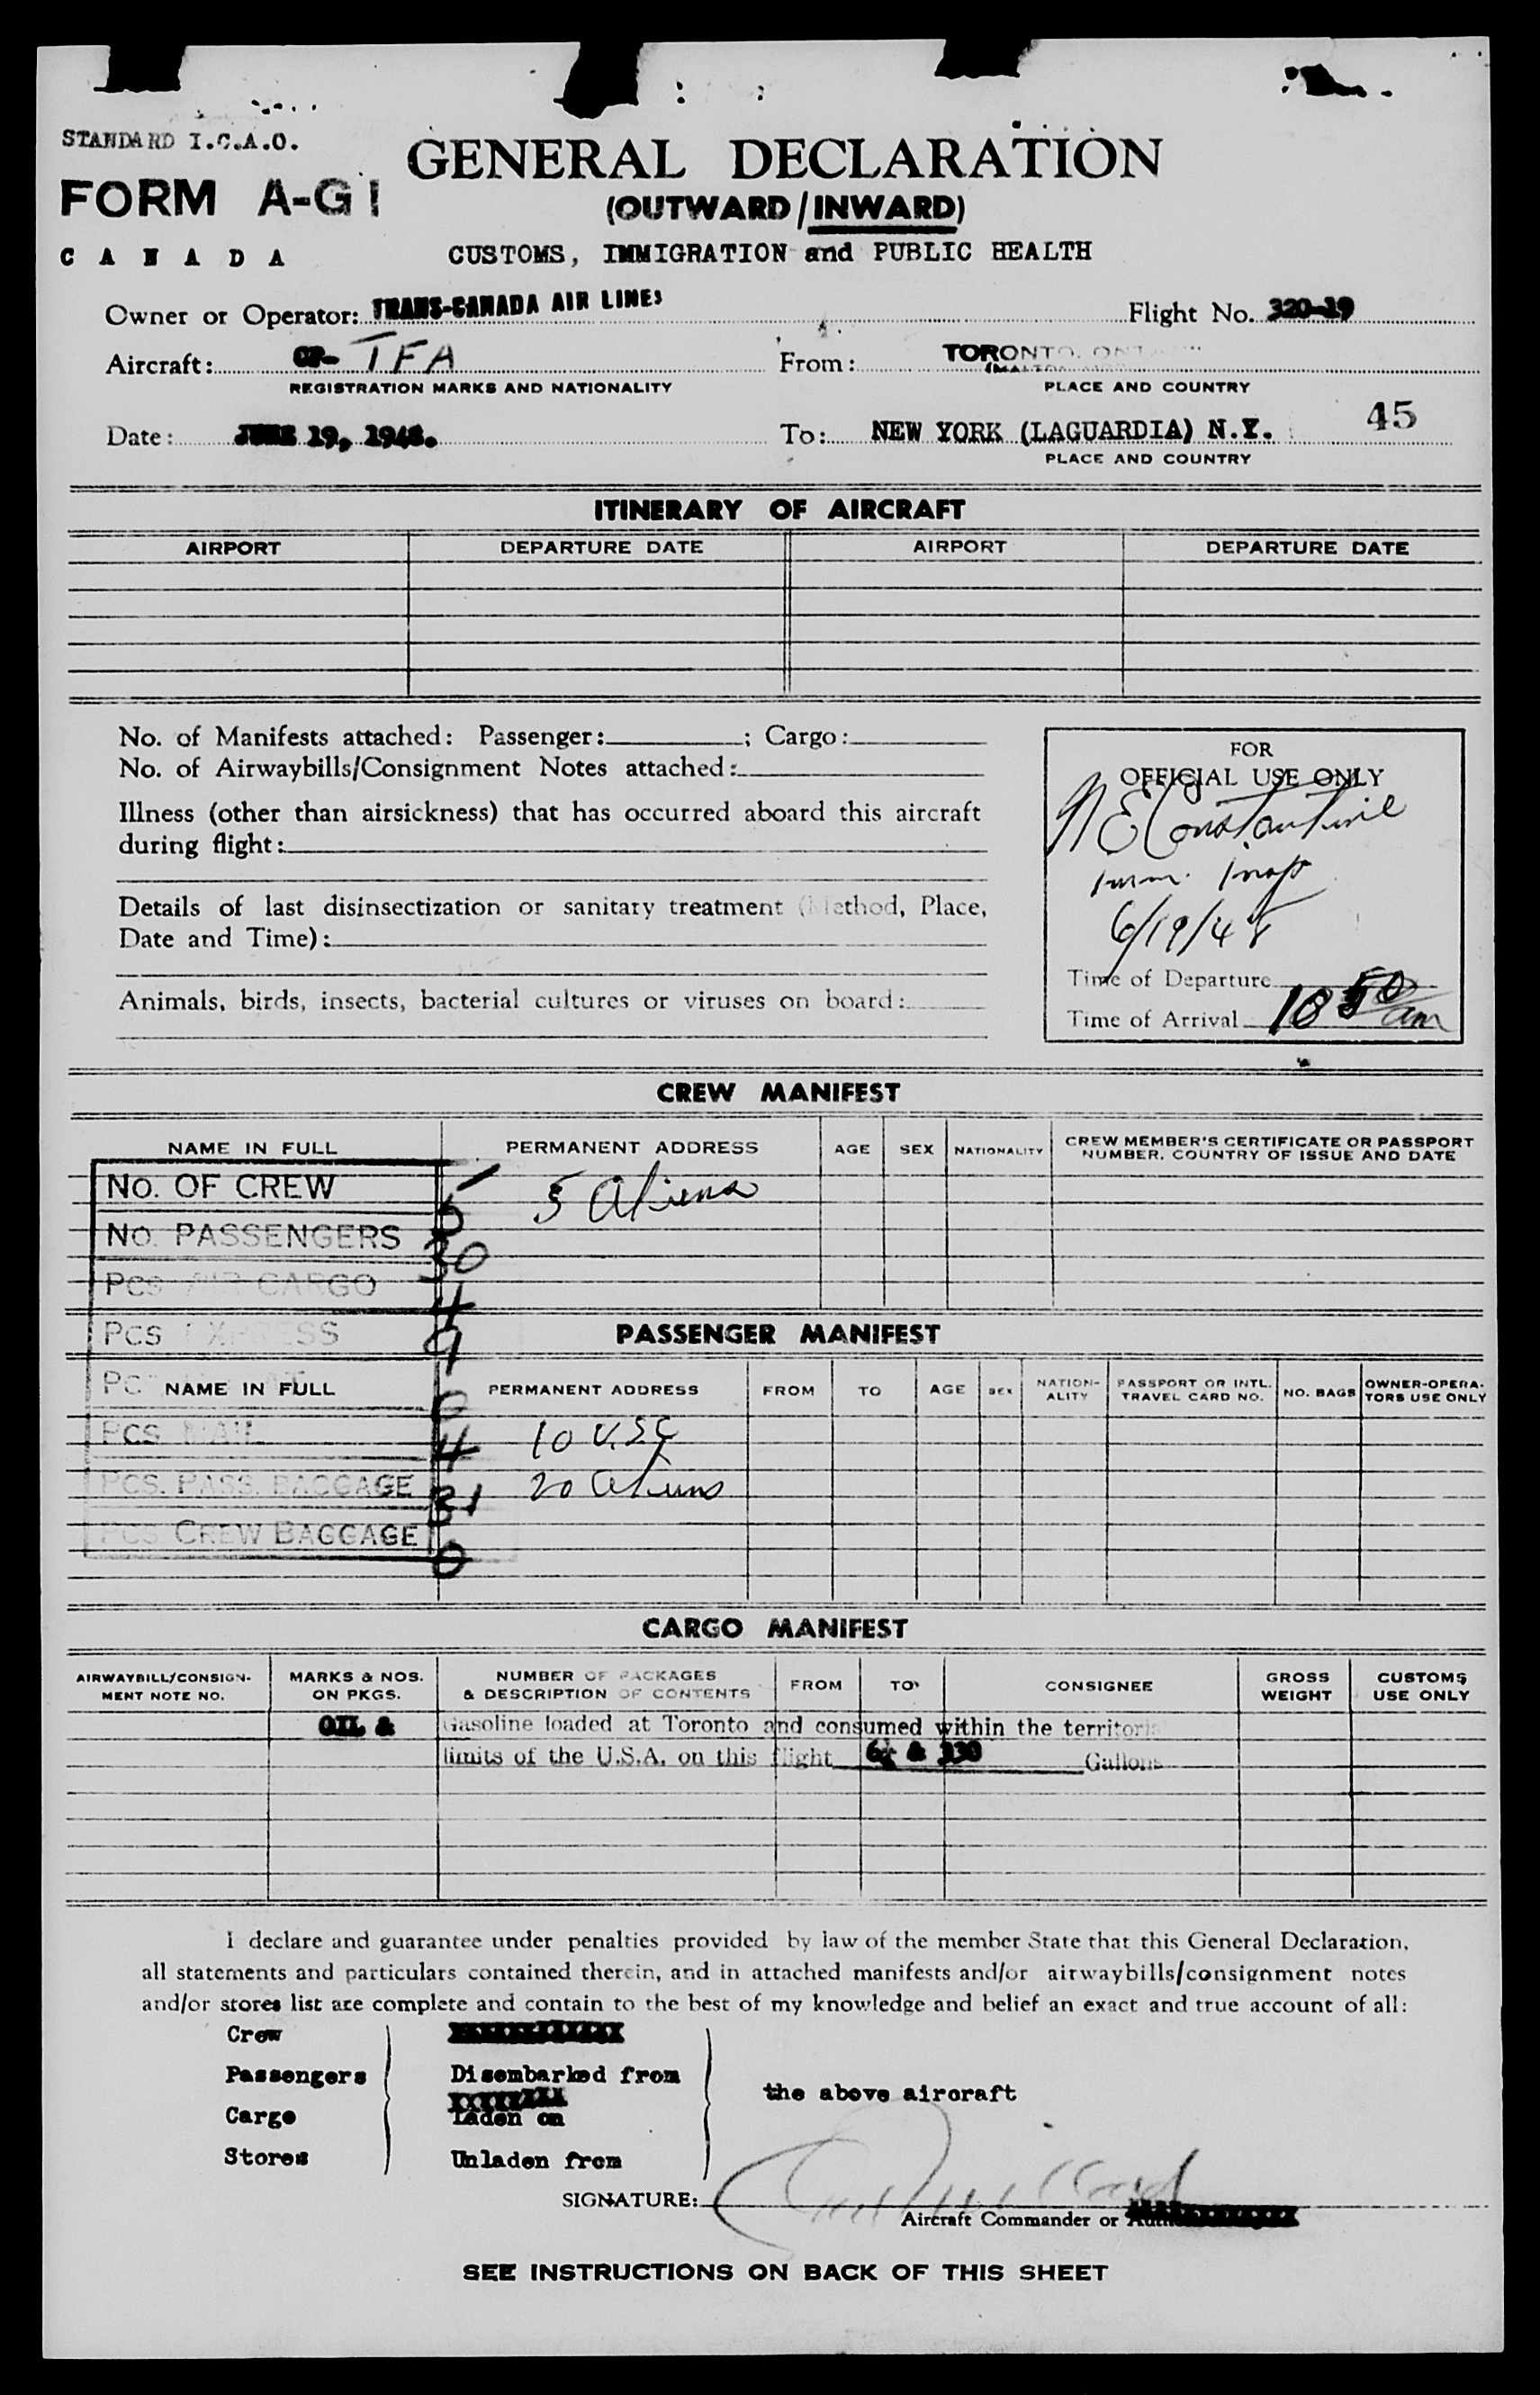 STANDARD I.C.A.O.
FORM A-G1
CANADA
GENERAL DECLARATION
(OUTWARD/INWARD)
CUSTOMS, IMMIGRATION and PUBLIC HEALTH
Owner or Operator: TRANS-CANADA AIR LINES
Flight No. 320-19
Aircraft: CF- TFA
REGISTRATION MARKS AND NATIONALITY
From: TORONTO, ONT
PLACE AND COUNTRY
Date: JUNE 19, 1948.
To: NEW YORK (LAGUARDIA) N.Y.
45
PLACE AND COUNTRY
ITINERARY OF AIRCRAFT
AIRPORT DEPARTURE DATE AIRPORT DEPARTURE DATE
No. of Manifests attached: Passenger: ; Cargo:
No. of Airwaybills/Consignment Notes attached:
Illness (other than airsickness) that has occurred aboard this aircraft
during flight:
Details of last disinsectization or sanitary treatment (Method, Place,
Date and Time):
Animals, birds, insects, bacterial cultures or viruses on board:
FOR
OFFICIAL USE ONLY
N E Constantine
Imm. Insp
6/19/48
Time of Departure
Time of Arrival 10 50 am
CREW MANIFEST
NAME IN FULL PERMANENT ADDRESS AGE SEX NATIONALITY CREW MEMBER'S CERTIFICATE OR PASSPORT
NUMBER, COUNTRY OF ISSUE AND DATE
No. OF CREW 5
5 Aliens
No. PASSENGERS 30
Pcs AIR CARGO 4
Pcs EXPRESS 9
PASSENGER MANIFEST
NAME IN FULL PERMANENT ADDRESS FROM TO AGE SEX NATION-
ALITY PASSPORT OR INTL.
TRAVEL CARD NO. NO. BAGS OWNER-OPERA-
TORS USE ONLY
0
Pcs MAIL 4
10 U.S.C
PCS. PASS. BAGGAGE 31
20 Aliens
PCS CREW BAGGAGE 0
CARGO MANIFEST
AIRWAYBILL/CONSIGN-
MENT NOTE NO. MARKS & NOS.
ON PKGS. NUMBER OF PACKAGES
& DESCRIPTION OF CONTENTS FROM TO CONSIGNEE GROSS
WEIGHT CUSTOMS
USE ONLY
OIL & Gasoline loaded at Toronto and consumed within the territori
limits of the U.S.A. on this flight & 330 Gallons
I declare and guarantee under penalties provided by law of the member State that this General Declaration,
all statements and particulars contained therein, and in attached manifests and/or airwaybills/consignment notes
and/or stores list are complete and contain to the best of my knowledge and belief an exact and true account of all:
Crew
Passengers Disembarked from
the above aircraft
Cargo Laden on
Stores Unladen from
SIGNATURE:
Aircraft Commander or
SEE INSTRUCTIONS ON BACK OF THIS SHEET